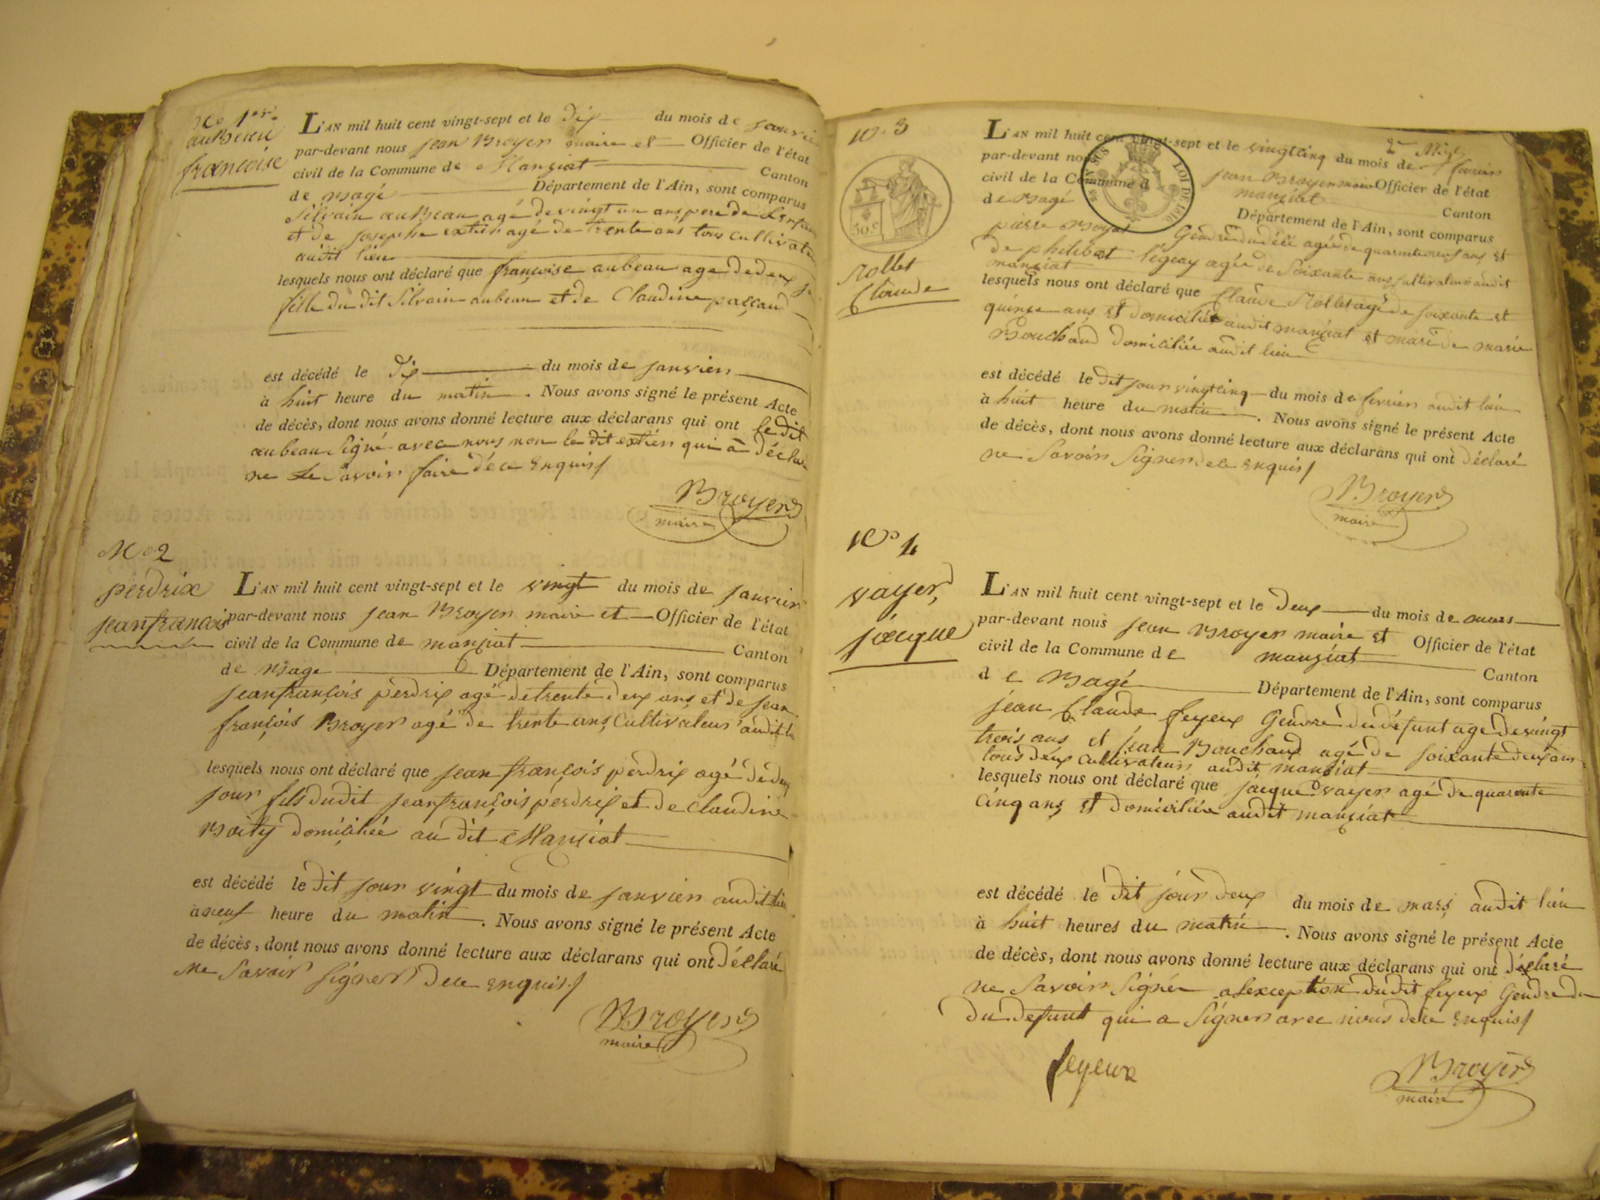 No 1er
aubeau
françoise
L'AN mil huit cent vingt-sept et le dix du mois de janvier
par-devant nous jean Broyer maire et Officier de l'état
civil de la Commune de Manziat Canton
de Bagé Département de l'Ain, sont comparus
Silvain aubeau agé de vingt un ans pere de l'enfant
et de josephe extier agé de trente ans tous cultivateurs
audit lieu
lesquels nous ont déclaré que françoise aubeau age de deux
fille du dit Silvain aubeau et de Claudine
est décédé le dix du mois de janvier
à huit heure du matin. Nous avons signé le présent Acte
de décès, dont nous avons donné lecture aux déclarans qui ont le dit
aubeau Signé avec nous non le dit extier qui à déclaré
ne le Savoir faire de ce enquis
Broyer
maire
No 2
perdrix
jeanfrancois
L'AN mil huit cent vingt-sept et le vingt du mois de janvier
par-devant nous jean Broyer maire et Officier de l'état
civil de la Commune de manziat Canton
de Bage Département de l'Ain, sont comparus
jeanfrançois perdrix agé de trente deux ans et de jean
françois Broyer agé de trente ans Cultivateurs audit
lesquels nous ont déclaré que jean françois perdrix agé de deux
jour fils dudit jeanfrançois perdrix et de claudine
domiciliée au dit Manziat
est décédé le dit jour vingt du mois de janvier audit lieu
à neuf heure du matin. Nous avons signé le présent Acte
de décès, dont nous avons donné lecture aux déclarans qui ont déclaré
ne Savoir signer de ce enquis
Broyer
maire
No 3
Rollet
Claude
L'AN mil huit cent vingt-sept et le vingt cinq du mois de février
par-devant nous jean Broyer maire Officier de l'état
civil de la Commune d manziat Canton
de Bagé Département de l'Ain, sont comparus
pierre Gendre du délé agé de quarente neuf ans et
de philibert agé de Soixante ans cultivateurs audit
manziat
lesquels nous ont déclaré que Claude Rollet agé de soixante et
quinze ans et domicilié audit manziat et mari de marie
Bouchard domiciliée audit lieu
est décédé le dit jour vingt cinq du mois de fevrier audit lieu
à huit heure du matin. Nous avons signé le présent Acte
de décès, dont nous avons donné lecture aux déclarans qui ont déclaré
ne Savoir Signer de ce enquis
Broyer
maire
No 4
vayer,
jacque
L'AN mil huit cent vingt-sept et le Deux du mois de mars
par-devant nous jean Broyer maire et Officier de l'état
civil de la Commune de manziat Canton
de Bagé Département de l'Ain, sont comparus
jean Claude feyeux Gendre du défunt age de vingt
trois ans et jean Bouchard agé de soixante deux ans
tous deux cultivateurs audit manziat
lesquels nous ont déclaré que jacque vayer agé de quarente
Cinq ans et domicilié audit manziat
est décédé le dit jour deux du mois de mars audit lieu
à huit heures du matin. Nous avons signé le présent Acte
de décès, dont nous avons donné lecture aux déclarans qui ont déclaré
ne Savoir Signer a lexception du dit feyeux Gendre du
du defunt qui a Signer avec nous de ce enquis
feyeux
Broyer
maire